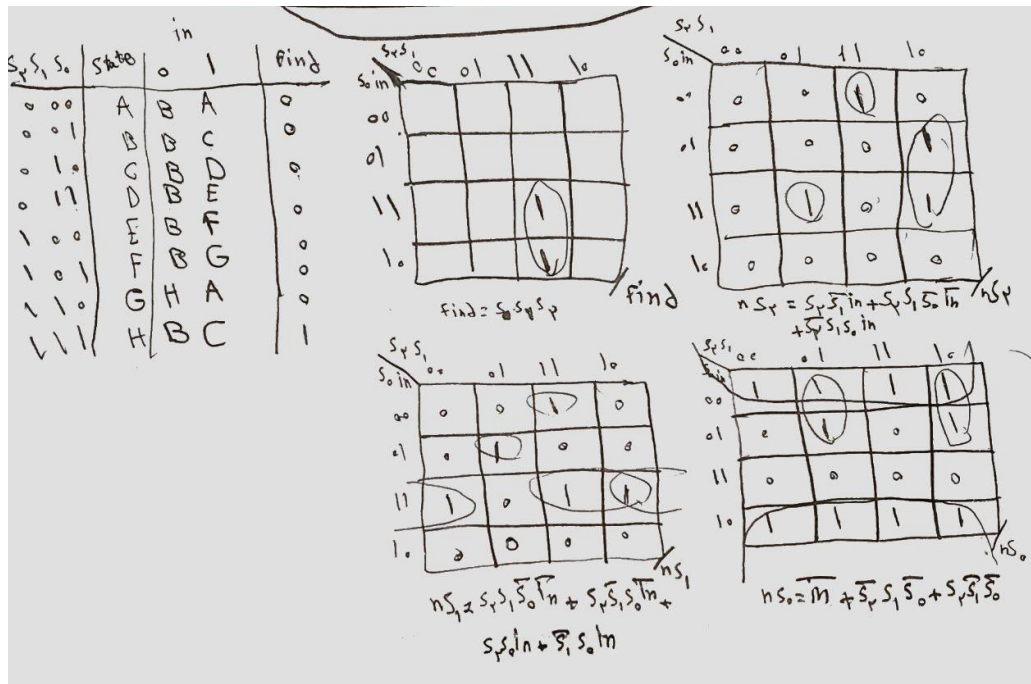 in
S۲ S₁ S₀ State 0 1 find
0 0 0 A B A 0
0 0 1 B B C 0
0 1 0 C B D
0 1 1 D B E 0
1 0 0 E B F 0
1 0 1 F B G 0
1 1 0 G H A 0
1 1 1 H B C 1
S۲S₁
S₀in 00 01 11 10
00
01
11 1
10 1
find
find = S₀S₁S۲
S۲S₁
S₀in 00 01 11 10
00 0 0 1 0
01 0 0 0 1
11 0 1 0 1
10 0 0 0 0
nS۲
nS۲ = S۲S̅₁in + S۲S₁S̅₀i̅n̅
+ S̅۲S₁S₀in
S۲S₁
S₀in 00 01 11 10
00 0 0 1 0
01 0 1 0 0
11 1 0 1 1
10 0 0 0 0
nS₁
nS₁ = S۲S₁S̅₀i̅n̅ + S۲S̅₁S₀i̅n̅ +
S۲S₀in + S̅₁S₀in
S۲S₁
S₀in 00 01 11 10
00 1 1 1 1
01 0 1 0 1
11 0 0 0 0
10 1 1 1 1
nS₀
nS₀ = i̅n̅ + S̅۲S₁S̅₀ + S۲S̅₁S̅₀